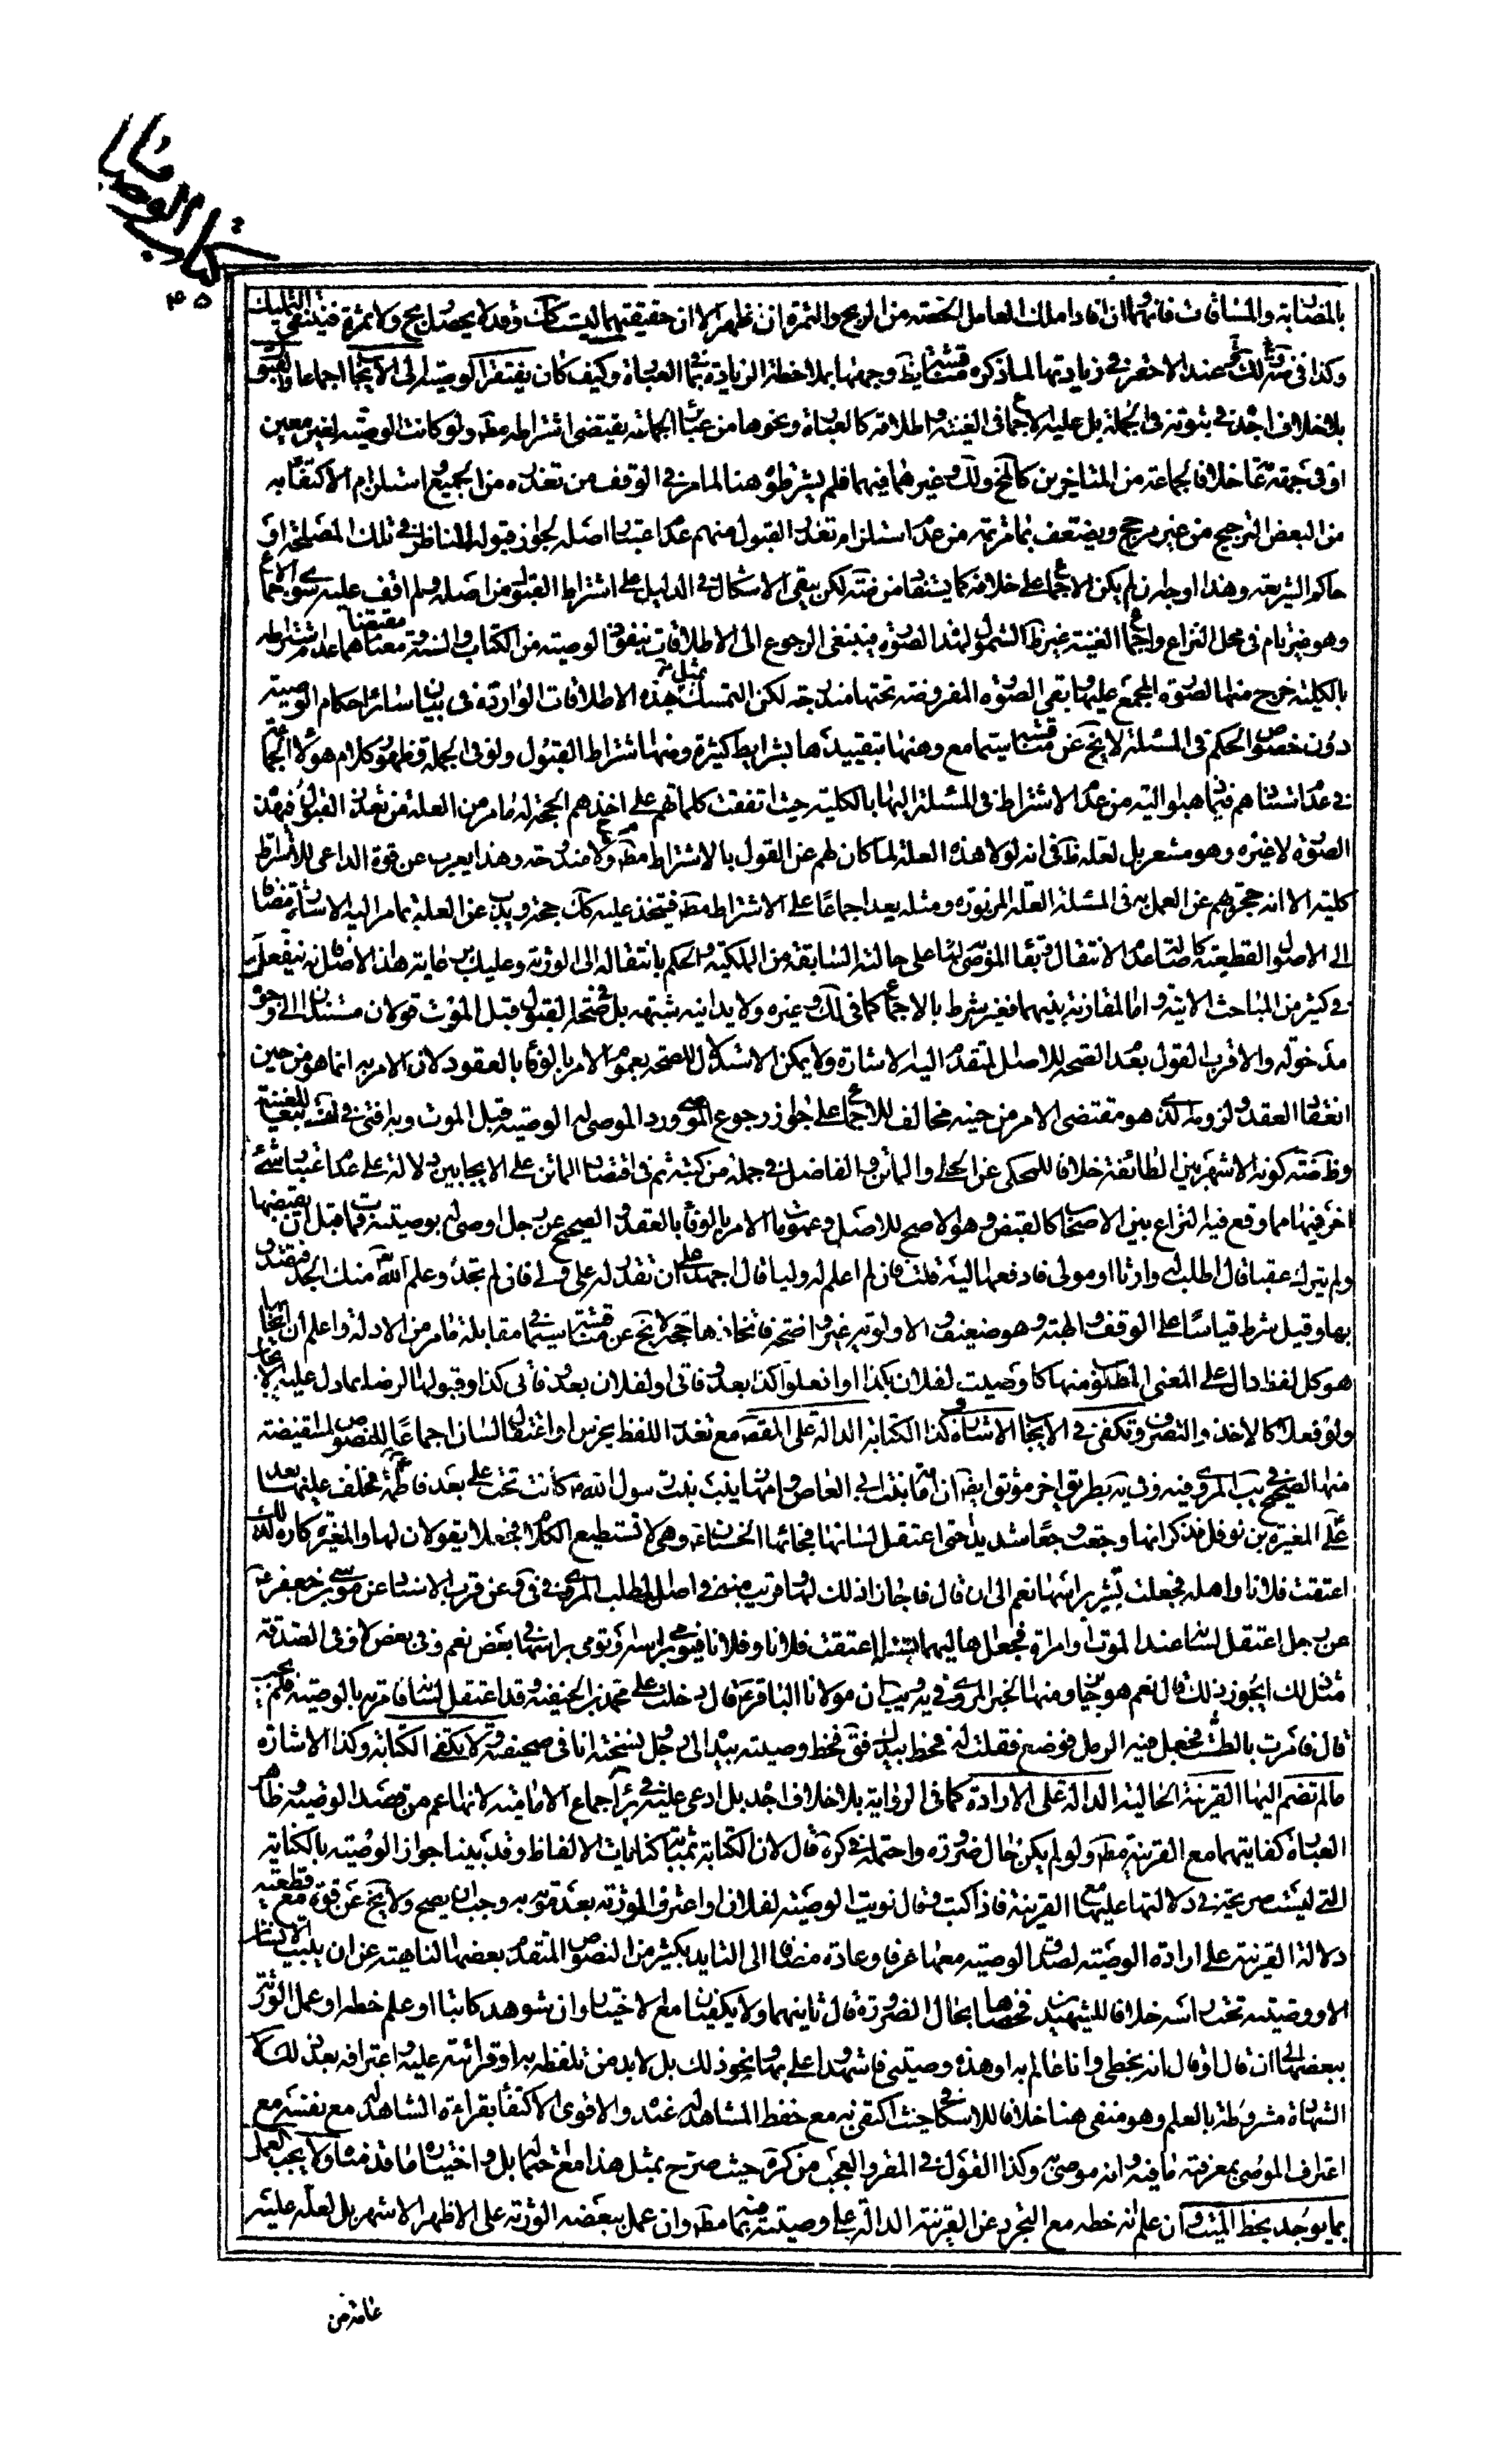 كتاب الوصايا
٤٥
بالمضاربة والمساقات فانهما وان افادا ملك العامل الحصة من الربح والثمرة ان ظهر الا ان حقيقتهما ليست كك وقد لا يحصل ربح ولا ثمرة فينتفي التمليك
وكذا في عند الاخير في زيادتها لما ذكره مناقشة ايضا وجهها بملاحظة الزيادة في العبارة وكيف كان يفتقر الوصية الى الايجاب اجماعا والقبول
بلا خلاف اجده في ثبوته في الجملة بل عليه الاجماع في الغنية واطلاقه كالعبارة ونحوها من عبائر الجماعة يقتضي اشتراطه مط ولو كانت الوصية لغير معين
او في جهة عامة خلافا لجماعة من المتاخرين ولك وغيرهما فيهما فلم يشترطوه هنا لما مر في الوقف من تعذره من الجميع واستلزام الاكتفاء به
من البعض الترجيح من غير مرجح ويضعف بما مر ثمة من عدم استلزام تعذر القبول منهم عدم اعتبار اصله لجواز قبول الناظر في تلك المصلحة او
حاكم الشريعة وهذا اوجه ان لم يكن الاجماع على خلافه كما يستفاد من ضه لكن يبقى الاشكال في الدليل على اشتراط القبول من اصله ولم اقف عليه سوى الاجماع
وهو غير تام في محل النزاع واجماع الغنية غير ظ الشمول لهذه الصورة فينبغي الرجوع الى الاطلاقات بنفوذ الوصية من الكتاب والسنة مقتضاها عدم اشتراطه
بالكلية خرج منها الصورة المجمع عليها وبقي الصورة المفروضة تحتها مندرجة لكن التمسك بمثل هذه الاطلاقات الواردة في بيان سائر احكام الوصية
دون خصوص الحكم في المسئلة لا يخ عن مناقشة سيما مع وهنها بتقييدها بشرايط كثيرة ومنها اشتراط القبول ولو في الجملة وظهور كلام هؤلاء الجماعة
في عدم استنادهم فيما ذهبوا اليه من عدم الاشتراط في المسئلة اليها بالكلية حيث اتفقت كلماتهم على اخذهم الحجة له ما مر من العلة من تعذر القبول في هذه
الصورة لا غيره وهو مشعر بل لعله ظ في انه لولا هذه العلة لما كان لهم عن القول بالاشتراط مط ولا مندوحة وهذا يعرب عن قوة الداعي للاشتراط
كلية الا انه حجزهم عن العمل به في المسئلة العلة المزبورة ومثله يعد اجماعا على الاشتراط مط فيتخذ عليه كك حجة ويذب عن العلة بما مر اليه الاشارة مضافا
الى الاصول القطعية كاصالة عدم الانتقال وبقاء الموصى بها على حالته السابقة من الملكية والحكم بانتقاله الى الورثة وعليك بمراعاة هذا الاصل فانه نافع
في كثير من المباحث الاتية واما المقارنة بينهما فغير شرط بالاجماع كما في لك وغيره ولا يدانيه شبهة بل في صحة القبول قبل الموت قولان مستندان الى وجوه
مدخولة والاقرب القول بعدم الصحة للاصل المتقدم اليه الاشارة ولا يمكن الاستدلال للصحة بعموم الامر بالوفاء بالعقود لان الامر به انما هو من حين
انعقاد العقد ولزومه الذي هو مقتضى الامر من حينه مخالف للاجماع على جواز رجوع الموصي ورد الموصى له الوصية قبل الموت وبه افتى في لفة تبعا للغنية
وظ ضه كونه الاشهر بين الطائفة خلافا للمحكي عن الحلي والماتن والفاضل في جملة من كتبه ثم في اقتصار الماتن على الايجابين دلالة على عدم اعتبار شئ
اخر فيها مما وقع فيه النزاع بين الاصحاب كالقبض وهو الاصح للاصل وعمومات الامر بالوفاء بالعقد والصحيح عن رجل اوصى له بوصية فمات قبل ان يقبضها
ولم يترك عقبا قال اطلب له وارثا او مولى فادفعها اليه قلت فان لم اعلم له وليا قال اجهد على ان تقدر له على ولي فان لم تجده وعلم الله منك الجد فتصدق
بها وقيل بشرط قياسا على الوقف والهبة وهو ضعيف والاولوية غير واضحة فاتخاذها حجة لا يخ عن مناقشة سيما في مقابلة ما مر من الادلة واعلم ان الايجاب
هو كل لفظ دال على المعنى المطلوب منها كاوصيت لفلان بكذا او افعلوا كذا بعد وفاتي او لفلان بعد وفاتي كذا وقبولها الرضا بما دل عليه الايجاب
ولو فعلا كالاخذ والتصرف وتكفي في الايجاب الاشارة وكذا الكتابة الدالة على المقصد مع تعذر اللفظ بخرس او اعتقال لسان اجماعا وللنصوص المستفيضة
منها الصحيح في يب المروي فيه وفي يه بطريق اخر موثق ايضا ان امامة بنت ابي العاص وامها زينب بنت رسول الله كانت تحت علي بعد فاطمة فخلف عليها بعد
علي المغيرة بن نوفل فذكر انها وجعت وجعا شديدا حتى اعتقل لسانها فجائها الحسنان وهي لا تستطيع الكلام فجعلا يقولان لها والمغيرة كاره لذلك
اعتقت فلانا واهله فجعلت تشير براسها نعم الى ان قال فاجازا ذلك لها وقريب منه في اصل المطلب المروي في في عن قرب الاسناد عن موسى بن جعفر ع
عن رجل اعتقل لسانه عند الموت او امراة فجعل اهاليهما يسئله اعتقت فلانا وفلانا فيومي براسه وتومي براسها في بعض نعم وفي بعض لا وفي الصدقة
مثل ذلك ايجوز ذلك قال نعم هو جايز ومنها الخبر المروي في يه ويب ان مولانا الباقر ع قال دخلت على محمد بن الحنفية وقد اعتقل لسانه فامرته بالوصية فلم يجب
قال فامرت بالطشت فجعل فيه الرمل فوضع فقلت له خط بيدك فخط وصيته بيده الى رجل نسخته انا في صحيفة ولا يكفي الكتابة وكذا الاشارة
مالم تضم اليها القرينة الحالية الدالة على الارادة كما في الرواية بلا خلاف اجد بل ادعى عليه في اجماع الامامية لانها اعم من قصد الوصية وظاهر
العبارة كفايتهما مع القرينة مط ولو لم يكن حال ضرورة واحتمله في كره قال لان الكتابة بمثابة كنايات الالفاظ وقد بينا جواز الوصية بالكناية
التي ليست صريحة في دلالتها عليها مع القرينة فاذا كتب وقال نويت الوصية لفلان واعترف الورثة بعد موته به وجب ان يصح ولا يخ عن قوة مع قطعية
دلالة القرينة على ارادة الوصية لصدق الوصية معها عرفا وعادة مضافا الى التاييد بكثير من النصوص المتقدم بعضها الناهية عن ان يبيت الانسان
الا ووصيته تحت راسه خلافا للشهيدين فخصاها بحال الضرورة قال ثانيهما ولا يكفيان مع الاختيار وان شوهد كاتبا او علم خطه او عمل الورثة
ببعضها ان قال او قال انه بخطي وانا عالم به او هذه وصيتي فاشهدوا علي بها ونحو ذلك بل لا بد من تلفظه به او قرائته عليه واعترافه بعد ذلك لان
الشهادة مشروطة بالعلم وهو منفي هنا خلافا للاسكافي حيث اكتفى به مع حفظ الشاهد له عنده والاقوى الاكتفاء بقراءة الشاهد له مع نفسه مع
اعتراف الموصي بمعرفته ما فيه وانه موصى به وكذا القول في المقر والعجب من كره حيث صرح بمثل هذا مع ما قدمناه ولا يجب العمل
بما يوجد بخط الميت وان علم انه خطه مع التجرد عن القرينة الدالة على وصيته منه بما مط وان عمل ببعضه الورثة على الاظهر الاشهر بل لعله عليه
عامة من